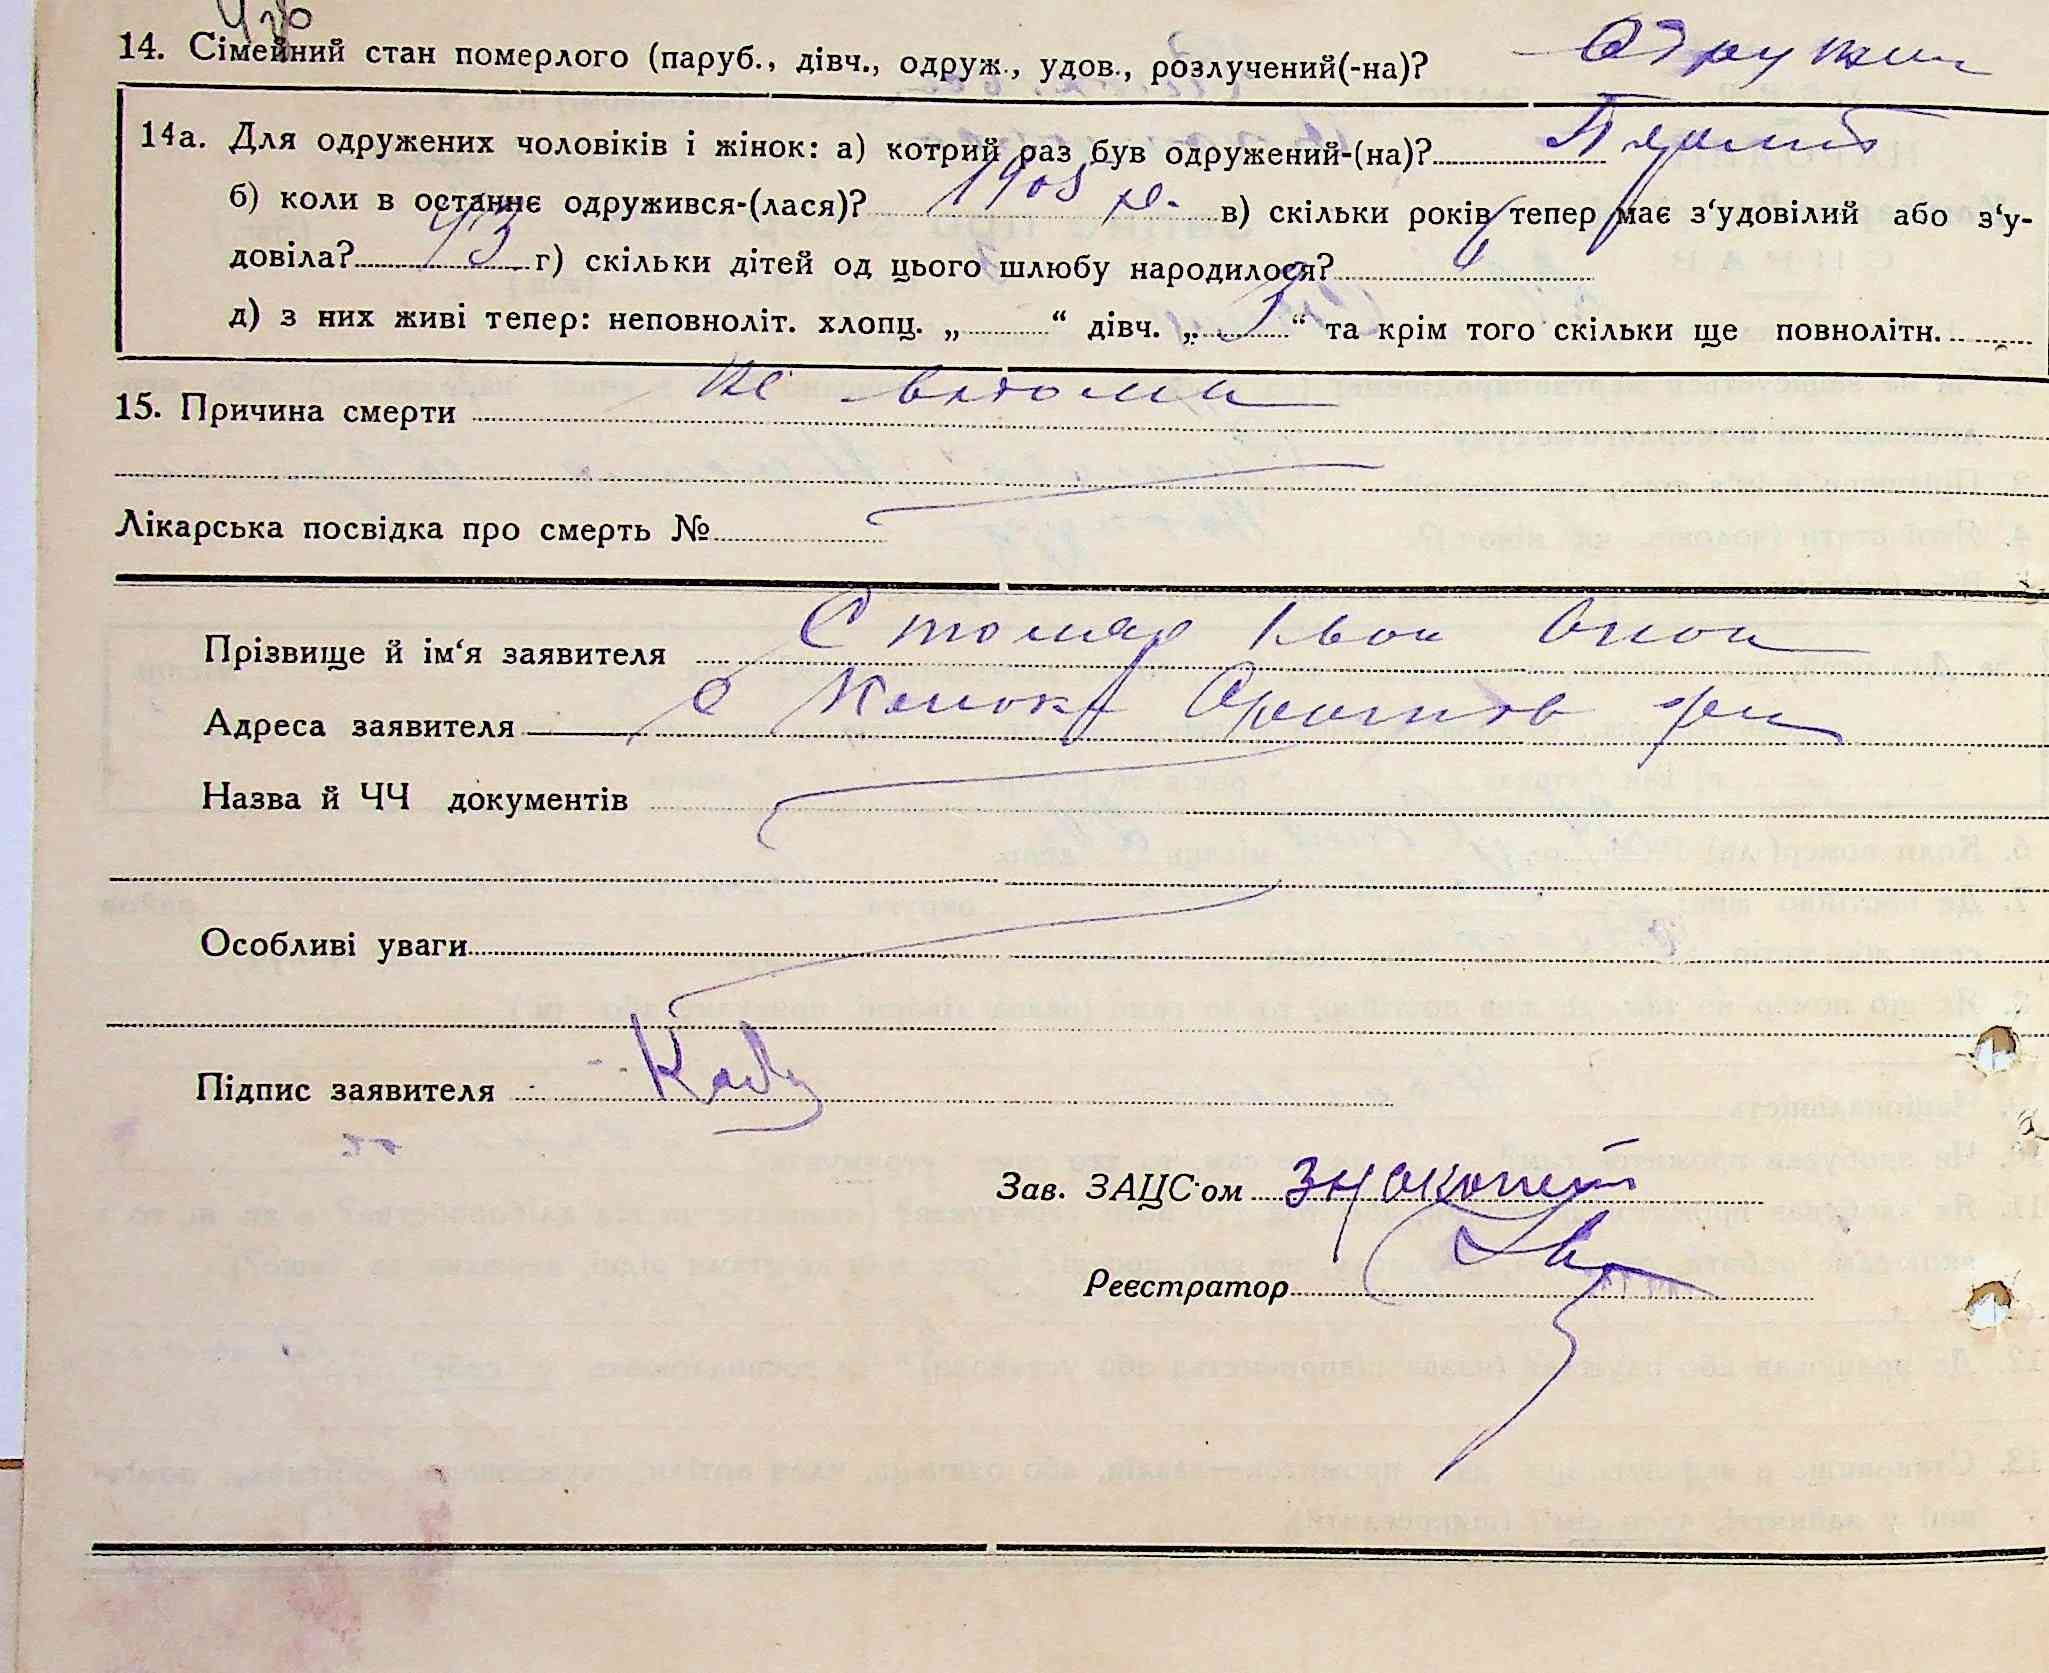 14. Сімейний стан померлого (паруб., дівч., одруж., удов., розлучений(-на)? Одружен
14а. Для одружених чоловіків і жінок: а) котрий раз був одружений-(на)?
б) коли в останнє одружився-(лася)? 1905 р. в) скільки років тепер має з‘удовілий або з‘у-
довіла? 43 г) скільки дітей од цього шлюбу народилося?
д) з них живі тепер: неповноліт. хлопц. „ “ дівч. „ “ та крім того скільки ще повнолітн.
15. Причина смерти Не відома
Лікарська посвідка про смерть №
Прізвище й ім‘я заявителя Столяр Іван
Адреса заявителя с
Назва й ЧЧ документів
Особливі уваги
Підпис заявителя
Зав. ЗАЦС‘ом
Реєстратор